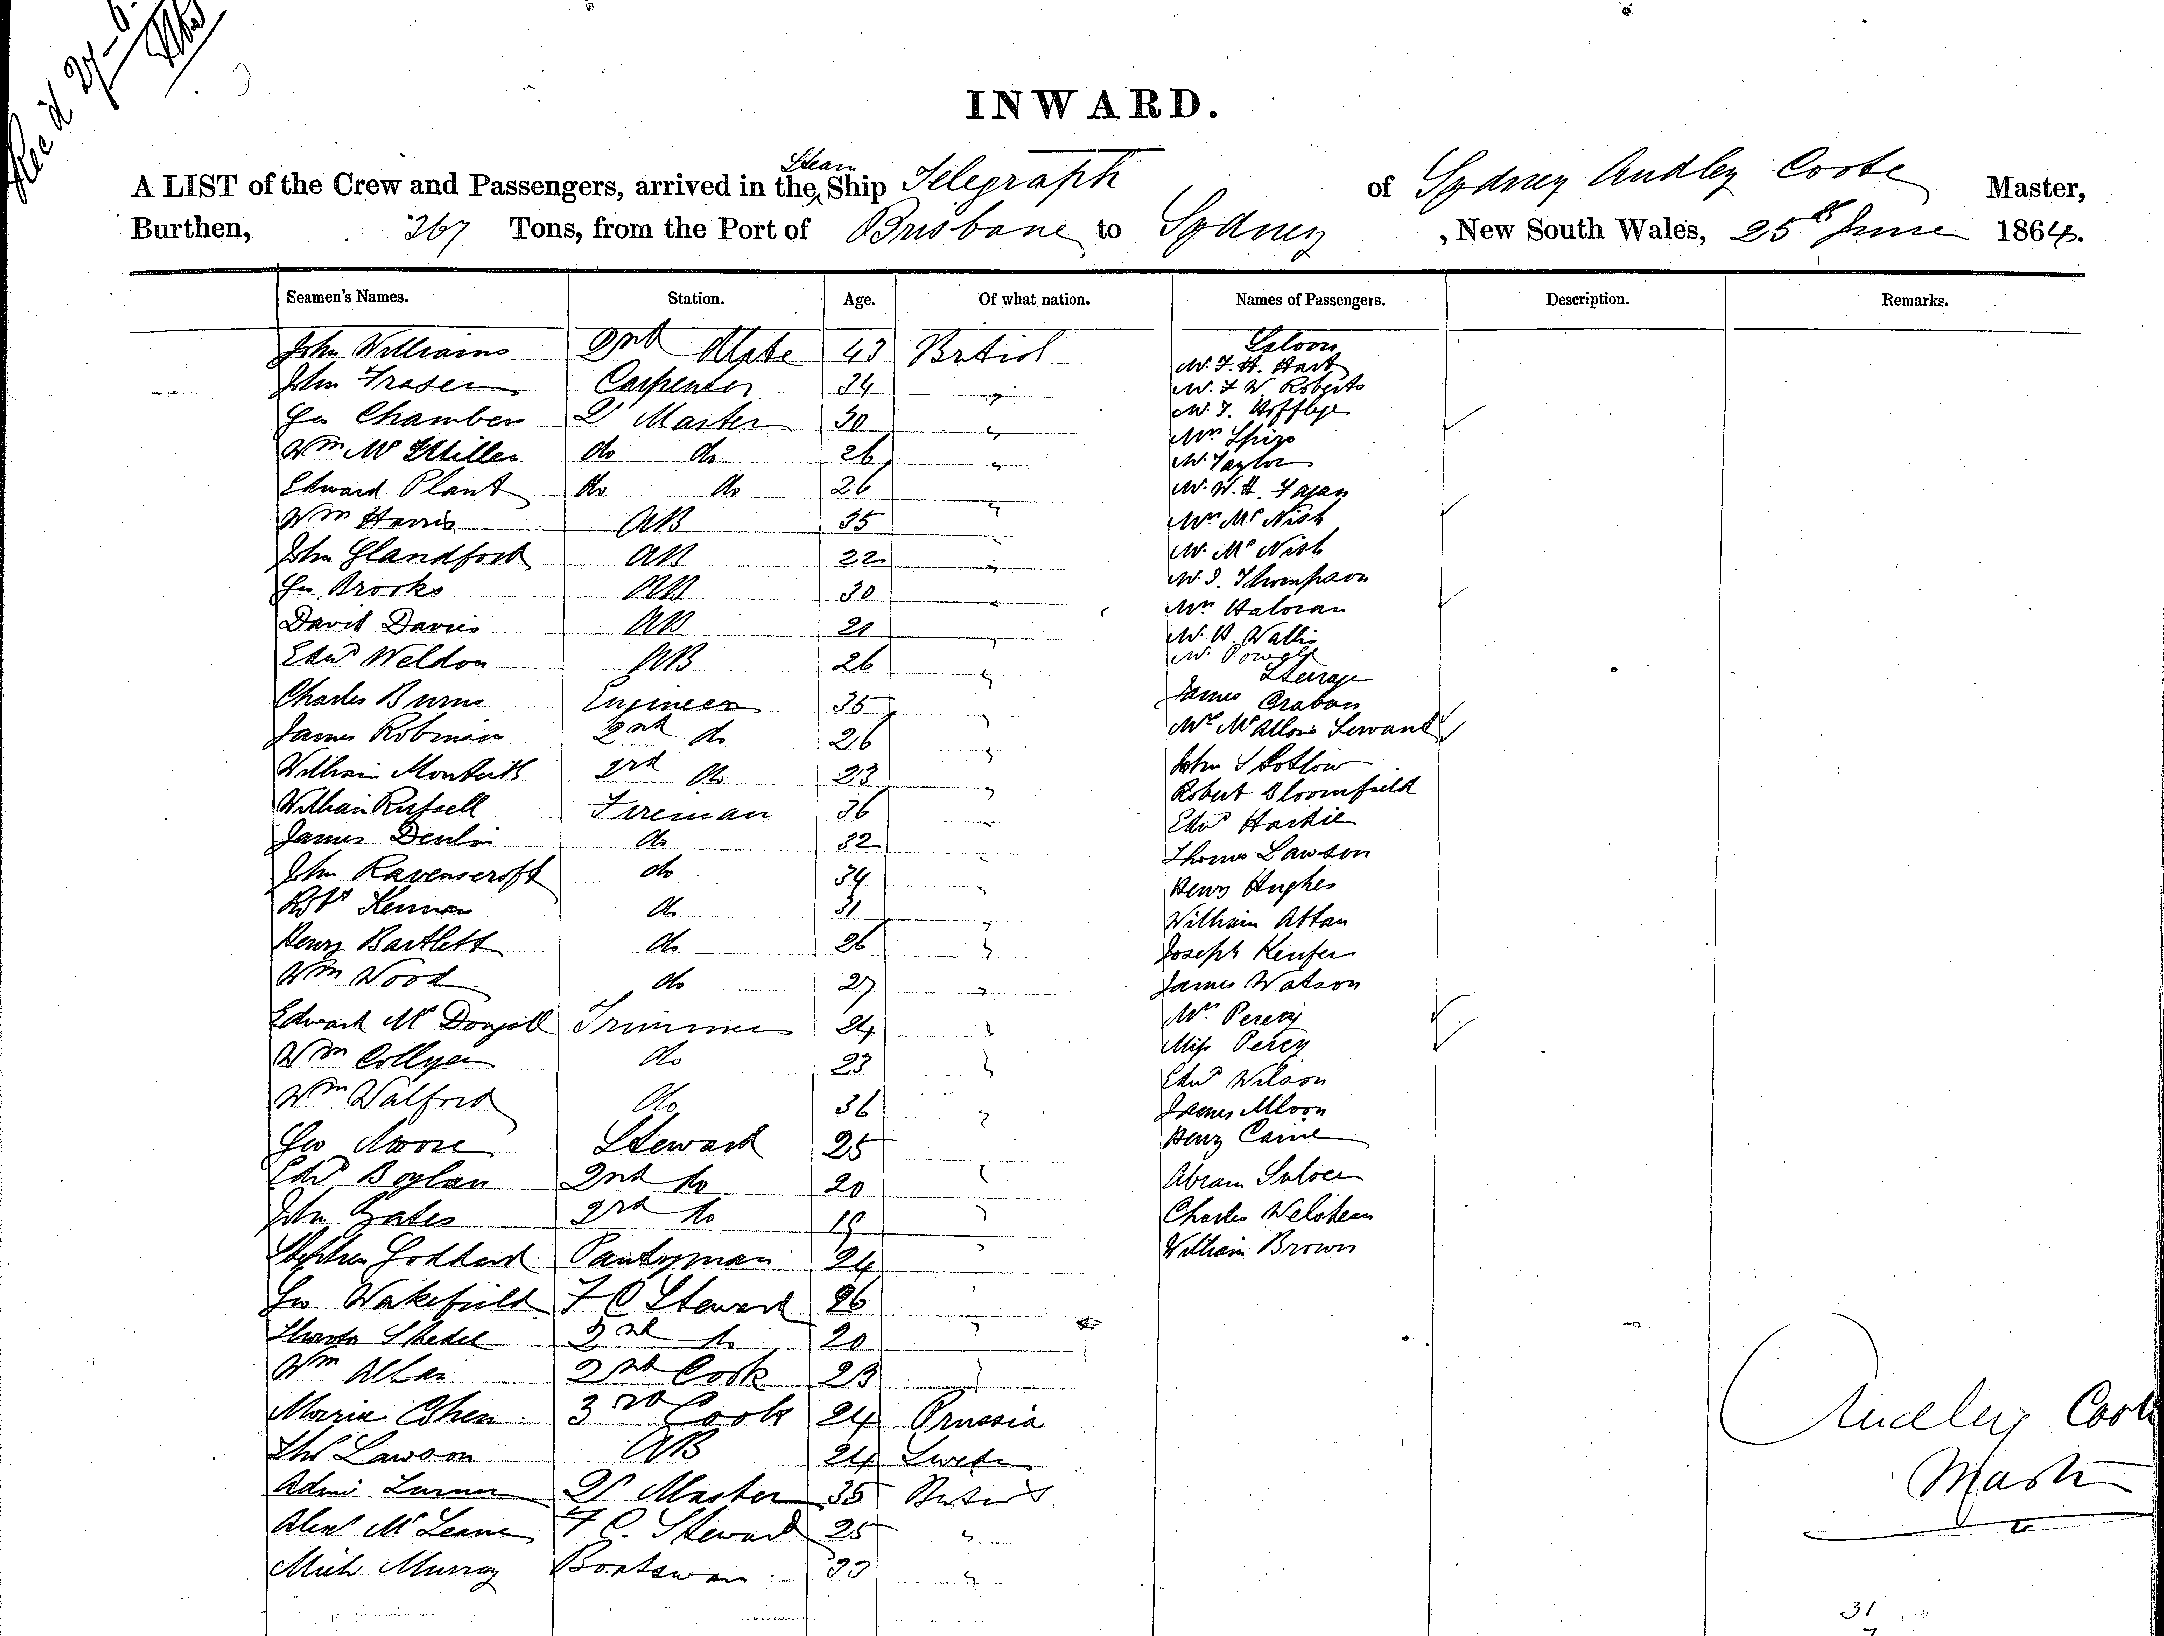 Rec'd 27-6
INWARD.
A LIST of the Crew and Passengers, arrived in the Steam Ship Telegraph of Sydney Audley Coote Master,
Burthen, 267 Tons, from the Port of Brisbane to Sydney, New South Wales, 25th June 1864.
Seamen's Names. Station. Age. Of what nation. Names of Passengers. Description. Remarks.
John Williams 2nd Mate 43 British Saloon
Mr. F. H. Hart
John Fraser Carpenter 34 " Mr. F W Roberts
Geo Chamber Qr Master 30 "
Wm McMillen do do 26 " Mrs Spiro
Mr Taylor
Edward Plant do do 26 " Mr. W. H. Fagan
Wm Harris AB 35 " Mrs McNish
John Glandford AB 22 " Mr. McNish
Geo Brooks AB 30 " Mr. J. Thompson
Mrs Haloran
David Davies AB 21 " Mr. H. Wallis
Mr. Powell
Edwd Weldon AB 26 " Steerage
Charles Burns Engineer 35 " James Crabon
James Robinson 2nd do 26 " Servant
William Monteith 3rd do 23 " John
Robert Bloomfield
William Russell Fireman 36 " Edwd Hartie
James Devlin do 32 " Thomas Lawson
John Ravenscroft do 34 " Henry Hughes
Robt Kennan do 31 " William Attan
Henry Bartlett do 26 " Joseph Kenfer
Wm Wood do 27 " James Watson
Edward McDougall Trimmer 24 " Mrs Percy
Wm Collyer do 23 " Miss Percy
Edwd Wilson
Wm Walford do 36 " James Moon
Geo Moore Steward 25 " Henry Caine
Edwd Boylan 2nd do 20 " Abram
John Bates 3rd do 19 " Charles
Stephen Goddard Pantryman 24 " William Brown
Geo Wakefield F C Steward 26 "
2nd do 20 "
Wm Allan 2nd Cook 23 "
Maria Cohen 3rd Cook 24 Prussia
Thos Lawson AB 24 Sweden
Qr Master 35 British
Alexr McLeane F C. Steward 25 "
Mich Murray Boatswan 33 "
Audley Coote
Master
31